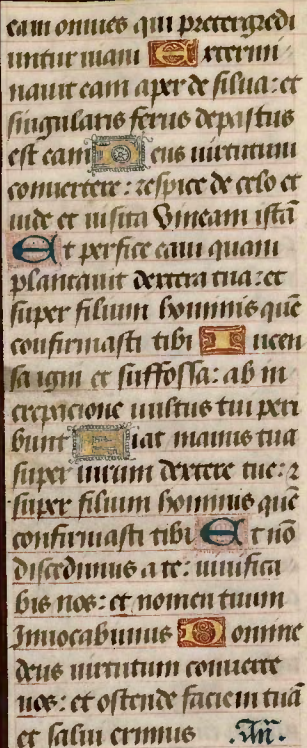 eam omnes qui pretergredi
untur uiam Extermi
nauit eam aper de silua: et
singularis ferus depastus
est eam Deus uirtutum
conuertere: respice de celo et
uide et uisita Vineam istā
Et perfice eam quam
plantauit dextera tua: et
super filium hominis quē
confirmasti tibi Incen
sa igni et suffossa: ab in
crepacione uultus tui peri
bunt Fiat manus tua
super uirum dextere tue: ⁊
super filium hominis quē
confirmasti tibi Et nō
discedimus a te: uiuifica
bis nos: et nomen tuum
Inuocabimus Domine
deus uirtutum conuerte
nos: et ostende faciem tuā
et salui erimus .Añ.